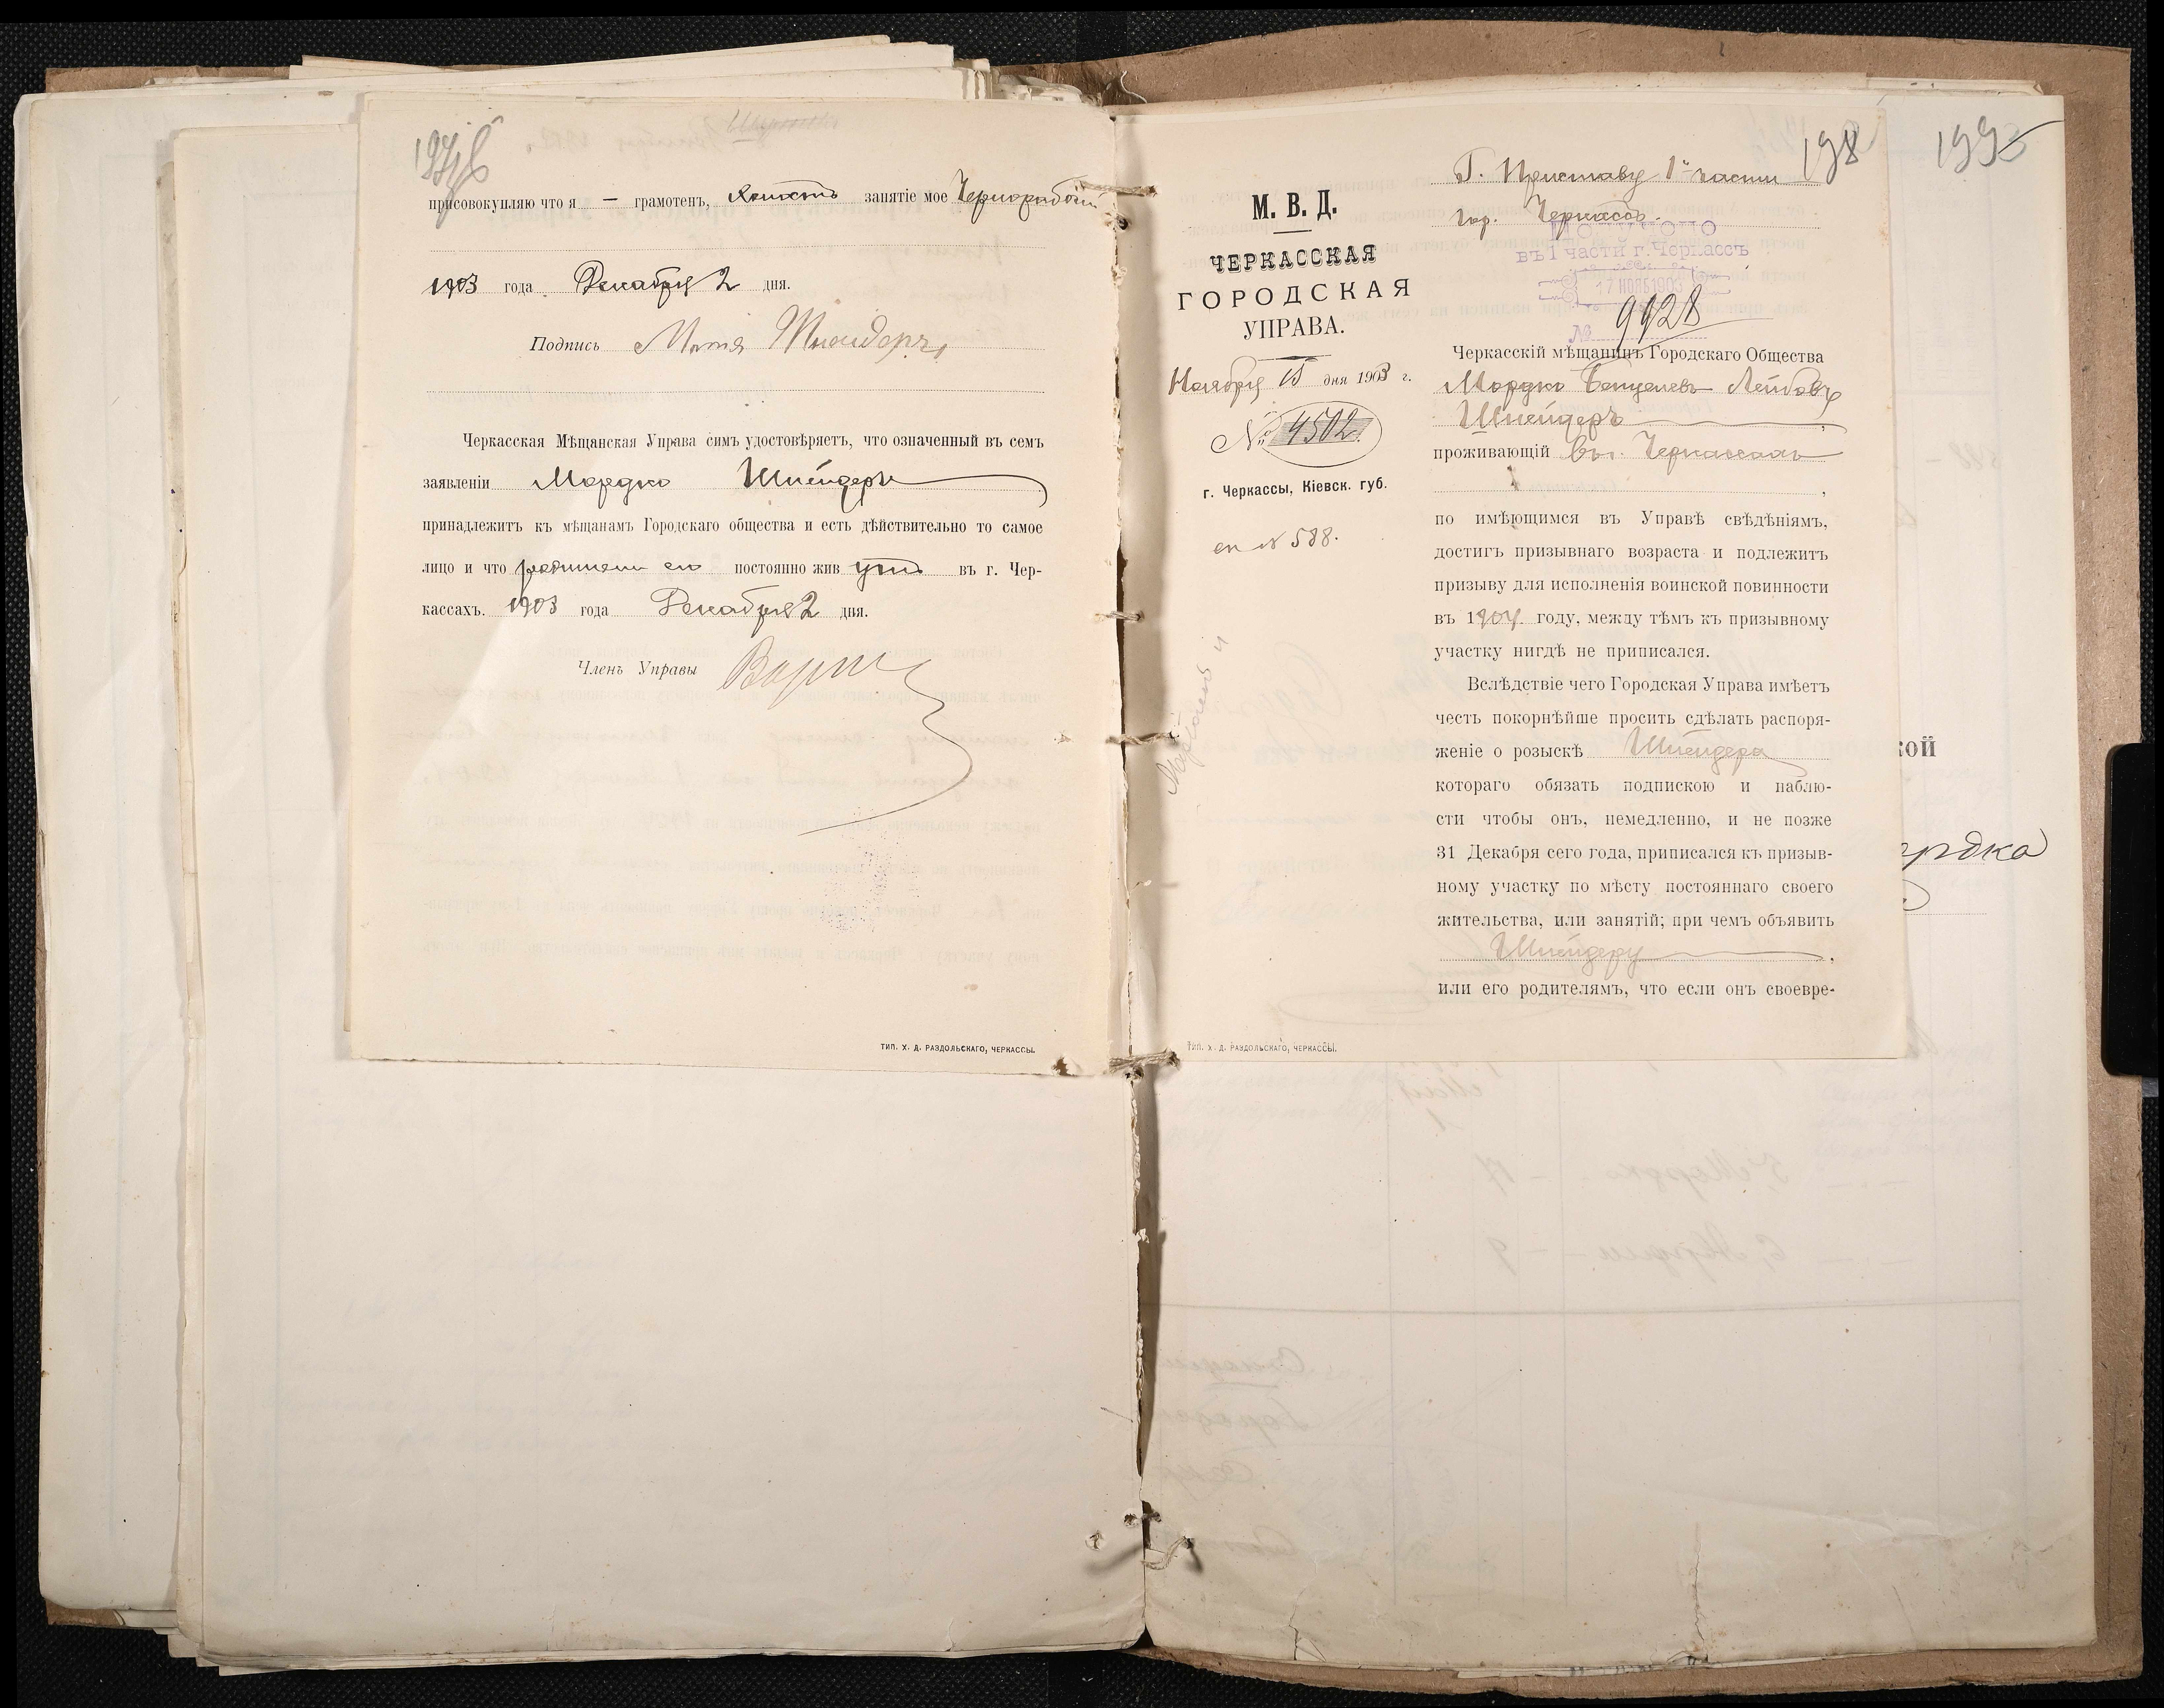 присовокупляю что я — грамотенъ, холостъ занятіе мое Чернорабочій
1903 года Декабря 2 дня.
Подпись Мотя Шнайдеръ
Черкасская Мѣщанская Управа симъ удостовѣряетъ, что означенный въ семъ
заявленіи Мордко Шнейдеръ
принадлежитъ къ мѣщанамъ Городскаго общества и есть дѣйствительно то самое
лицо и что родители его постоянно жив утъ въ г. Чер-
кассахъ. 1903 года Декабря 2 дня.
Членъ Управы
ТИП. Х. Д. РАЗДОЛЬСКАГО, ЧЕРКАССЫ.
198
1995
М. В. Д.
ЧЕРКАССКАЯ
ГОРОДСКАЯ
УПРАВА.
Ноября 15 дня 1903 г.
№ 4502.
г. Черкассы, Кіевск. губ.
сп № 588.
Г. Приставу 1й части
гор. Черкассъ.
ПОЛУЧЕНО
въ I части г. Черкассъ
17 НОЯБ 1903
№ 9928
Черкасскій мѣщанинъ Городскаго Общества
Мордко Бенцелевъ Лейбовъ
Шнейдеръ,
проживающій въ г. Черкассахъ
,
по имѣющимся въ Управѣ свѣдѣніямъ,
достигъ призывнаго возраста и подлежитъ
призыву для исполненія воинской повинности
въ 1904 году, между тѣмъ къ призывному
участку нигдѣ не приписался.
Вслѣдствіе чего Городская Управа имѣетъ
честь покорнѣйше просить сдѣлать распоря-
женіе о розыскѣ Шнейдера
котораго обязать подпискою и наблю-
сти чтобы онъ, немедленно, и не позже
31 Декабря сего года, приписался къ призыв-
ному участку по мѣсту постояннаго своего
жительства, или занятій; при чемъ объявить
Шнейдеру,
или его родителямъ, что если онъ своевре-
ТИП. Х. Д. РАЗДОЛЬСКАГО, ЧЕРКАССЫ.
кой
ордка